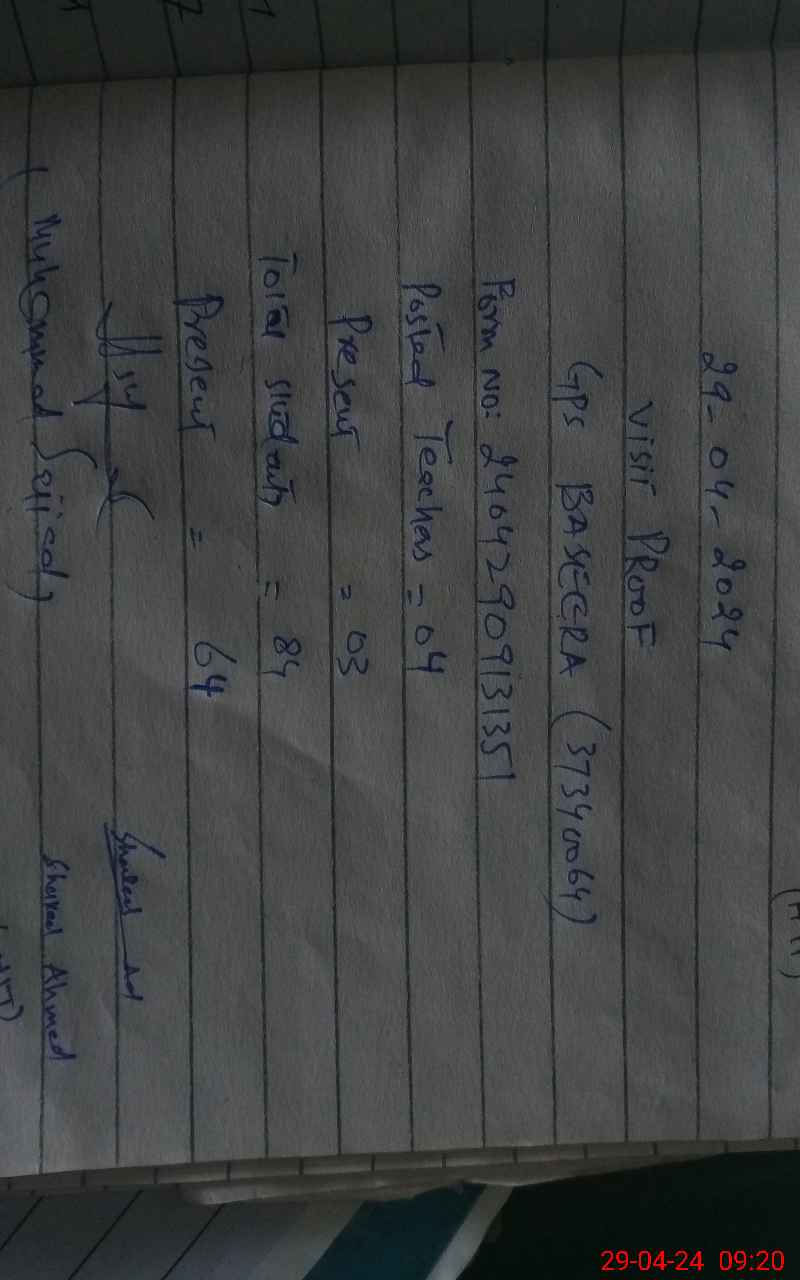 29-04-2024
VISIT PROOF
GPS BASEERA (37340064)
Form NO: 24042909131351
Posted Teachers = 04
Present = 03
Total students = 84
Present = 64
(Muhammad Sajjed)
Ahmed
29-04-24 09:20